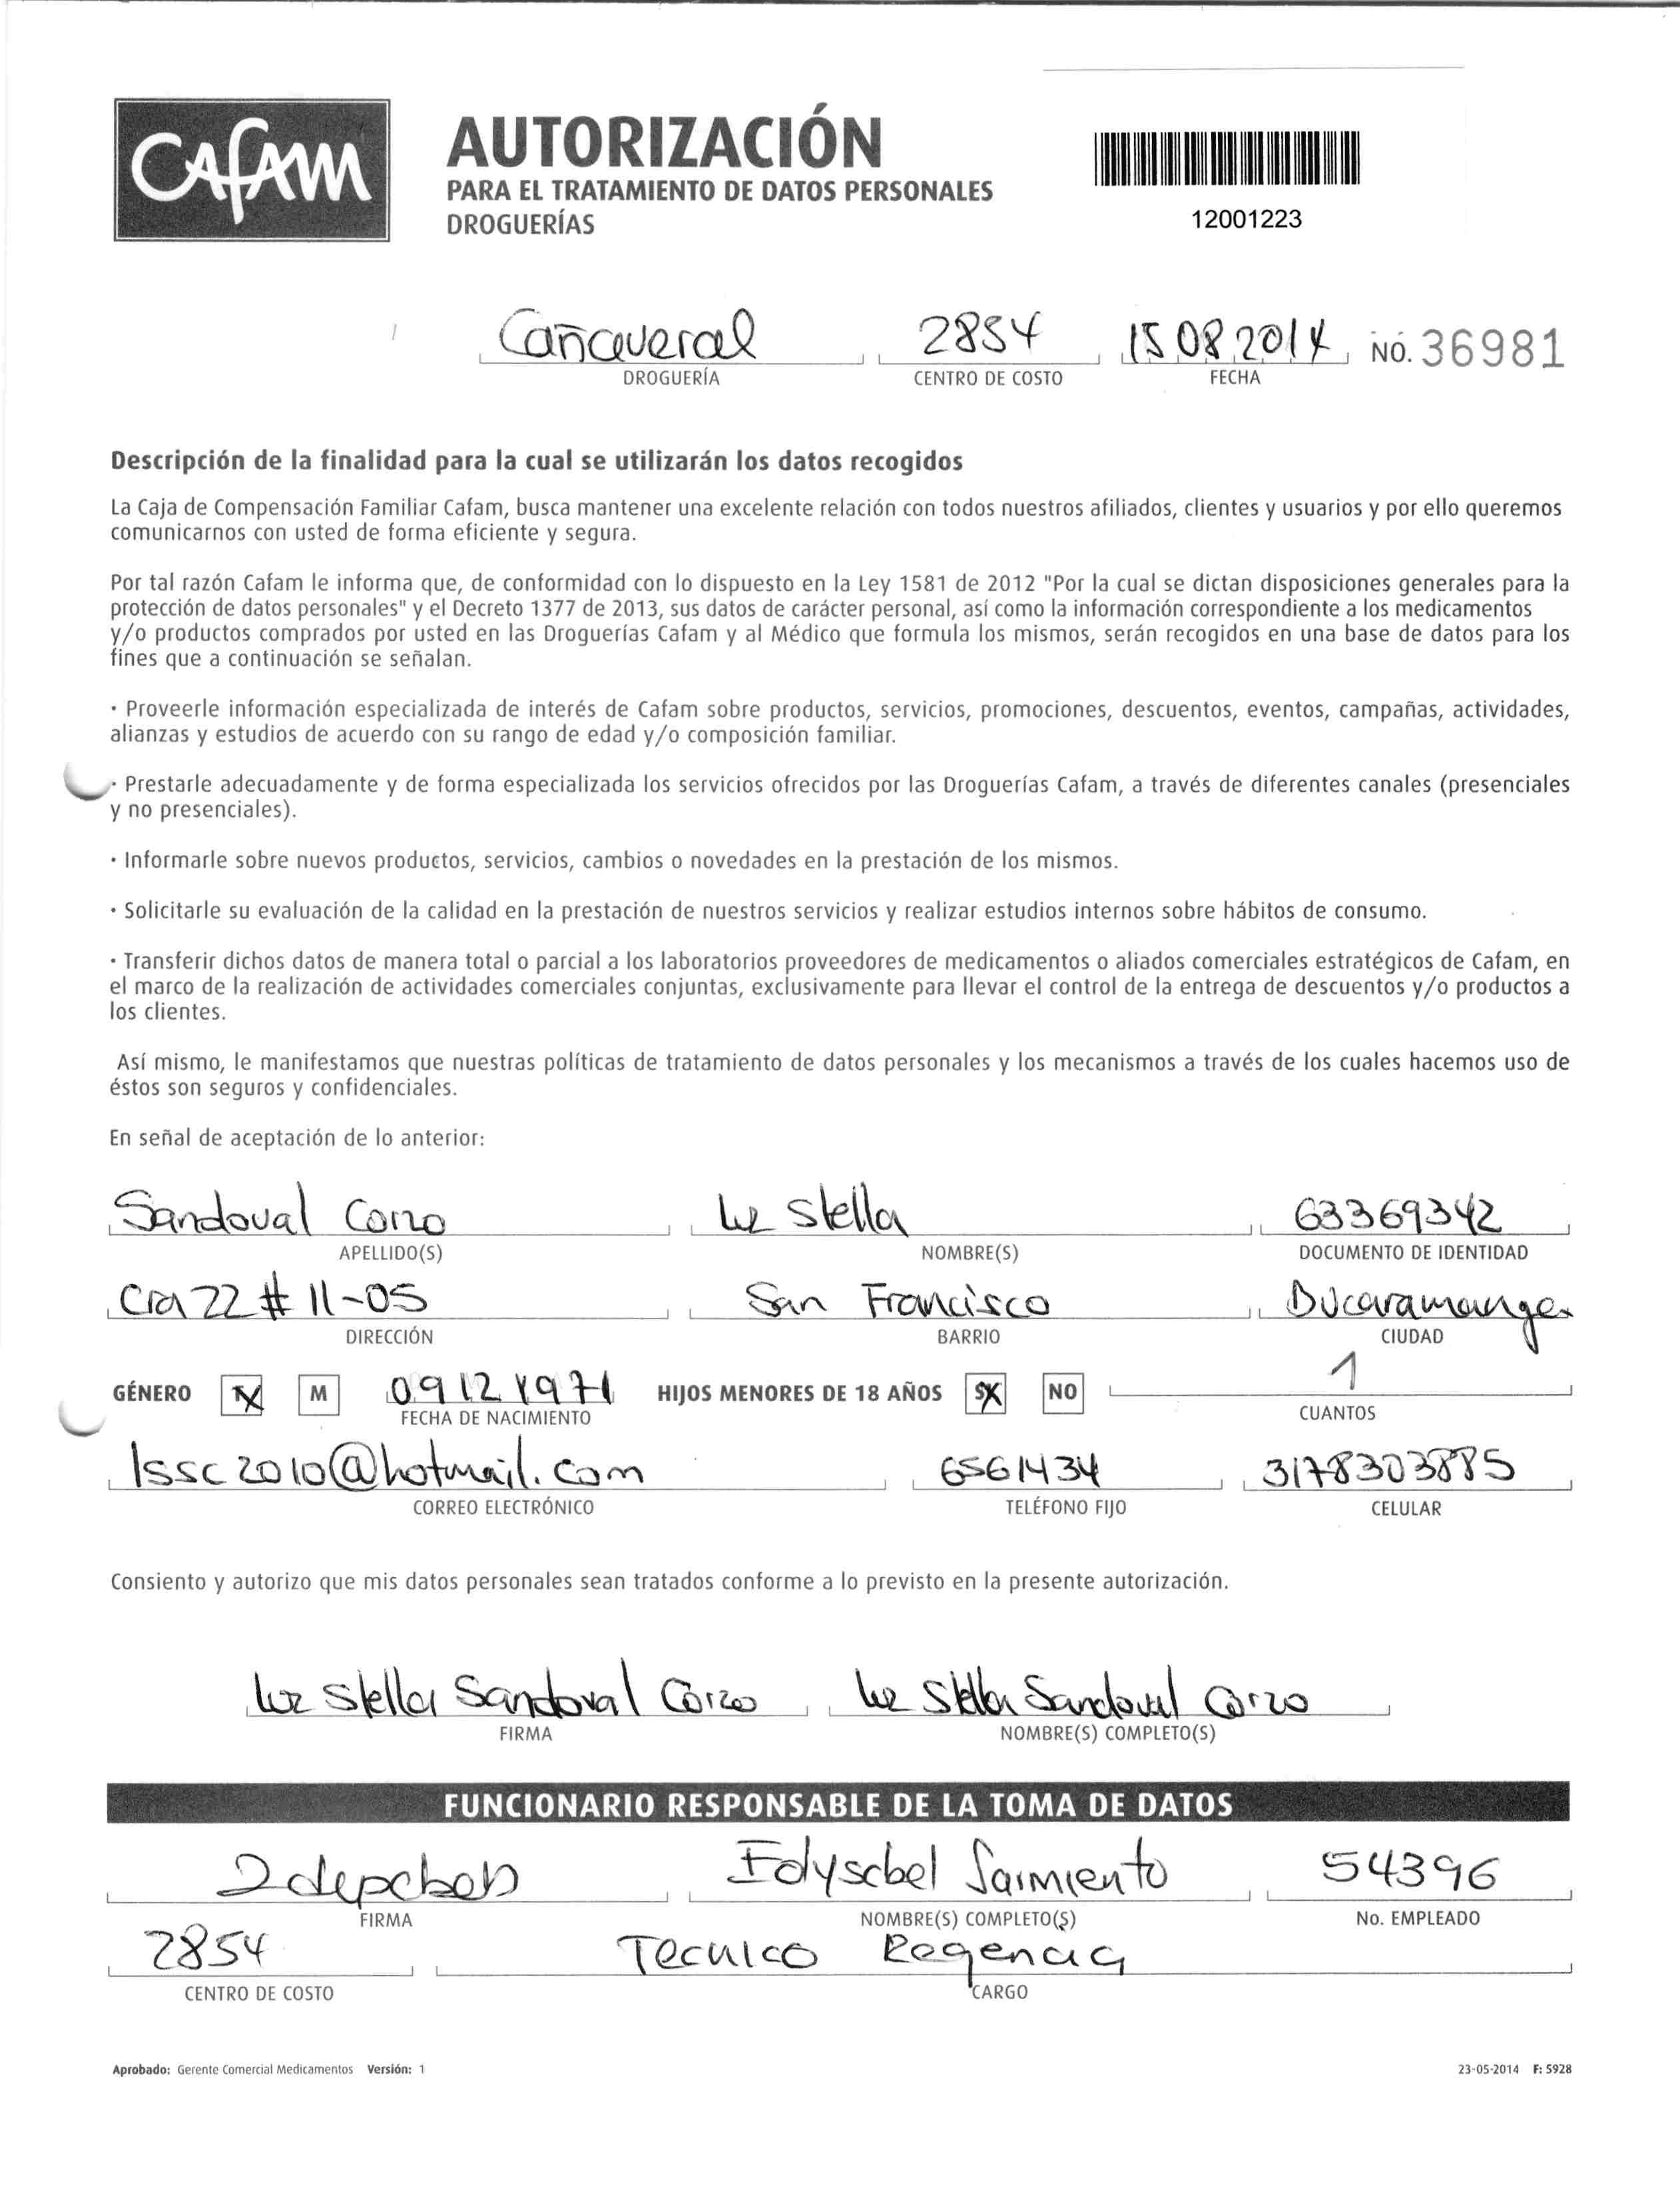 CAFAM
AUTORIZACIÓN
PARA EL TRATAMIENTO DE DATOS PERSONALES
DROGUERÍAS
12001223
Cañaveral 2854 15 08 2014 NO. 36981
DROGUERÍA CENTRO DE COSTO FECHA
Descripción de la finalidad para la cual se utilizarán los datos recogidos
La Caja de Compensación Familiar Cafam, busca mantener una excelente relación con todos nuestros afiliados, clientes y usuarios y por ello queremos
comunicarnos con usted de forma eficiente y segura.
Por tal razón Cafam le informa que, de conformidad con lo dispuesto en la Ley 1581 de 2012 "Por la cual se dictan disposiciones generales para la
protección de datos personales" y el Decreto 1377 de 2013, sus datos de carácter personal, así como la información correspondiente a los medicamentos
y/o productos comprados por usted en las Droguerías Cafam y al Médico que formula los mismos, serán recogidos en una base de datos para los
fines que a continuación se señalan.
· Proveerle información especializada de interés de Cafam sobre productos, servicios, promociones, descuentos, eventos, campañas, actividades,
alianzas y estudios de acuerdo con su rango de edad y/o composición familiar.
· Prestarle adecuadamente y de forma especializada los servicios ofrecidos por las Droguerías Cafam, a través de diferentes canales (presenciales
y no presenciales).
· Informarle sobre nuevos productos, servicios, cambios o novedades en la prestación de los mismos.
· Solicitarle su evaluación de la calidad en la prestación de nuestros servicios y realizar estudios internos sobre hábitos de consumo.
· Transferir dichos datos de manera total o parcial a los laboratorios proveedores de medicamentos o aliados comerciales estratégicos de Cafam, en
el marco de la realización de actividades comerciales conjuntas, exclusivamente para llevar el control de la entrega de descuentos y/o productos a
los clientes.
Así mismo, le manifestamos que nuestras políticas de tratamiento de datos personales y los mecanismos a través de los cuales hacemos uso de
éstos son seguros y confidenciales.
En señal de aceptación de lo anterior:
Sandoval Corzo Luz Stella 63369342
APELLIDO(S) NOMBRE(S) DOCUMENTO DE IDENTIDAD
Cra 22 # 11-05 San Francisco Bucaramanga
DIRECCIÓN BARRIO CIUDAD
GÉNERO X M 09 12 1971 HIJOS MENORES DE 18 AÑOS SX NO 1
FECHA DE NACIMIENTO CUANTOS
lssc2010@hotmail.com 6561434 3178303885
CORREO ELECTRÓNICO TELÉFONO FIJO CELULAR
Consiento y autorizo que mis datos personales sean tratados conforme a lo previsto en la presente autorización.
Luz Stella Sandoval Corzo Luz Stella Sandoval Corzo
FIRMA NOMBRE(S) COMPLETO(S)
FUNCIONARIO RESPONSABLE DE LA TOMA DE DATOS
Sarmiento 54396
FIRMA NOMBRE(S) COMPLETO(S) No. EMPLEADO
2854 Tecnico Regencia
CENTRO DE COSTO CARGO
Aprobado: Gerente Comercial Medicamentos Versión: 1 23-05-2014 F: 5928